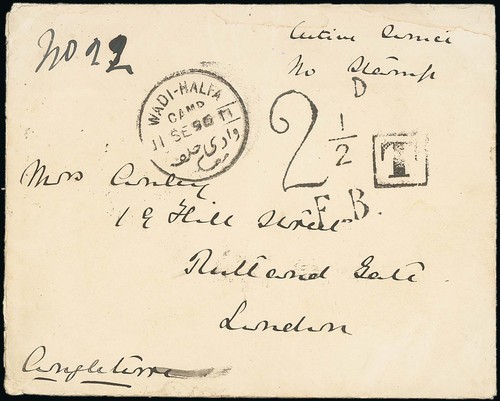 No 92
Active Service
No Stamp
WADI-HALFA
CAMP
11 SE 96
وادي حلفه
2 1/2 D
T
F.B.
Mrs
19 Hill Street
Rutland Gate
London
Angleterre